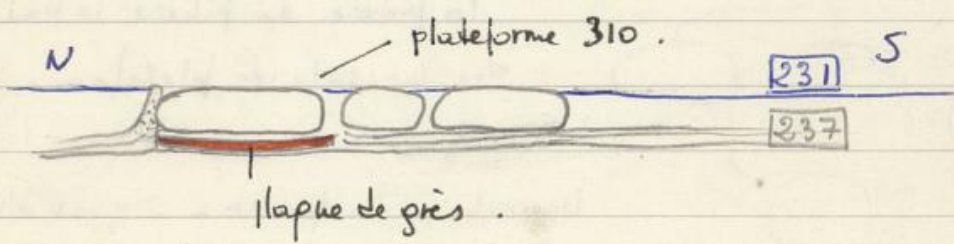 plateforme 310.
N
231
S
237
plaque de grès.